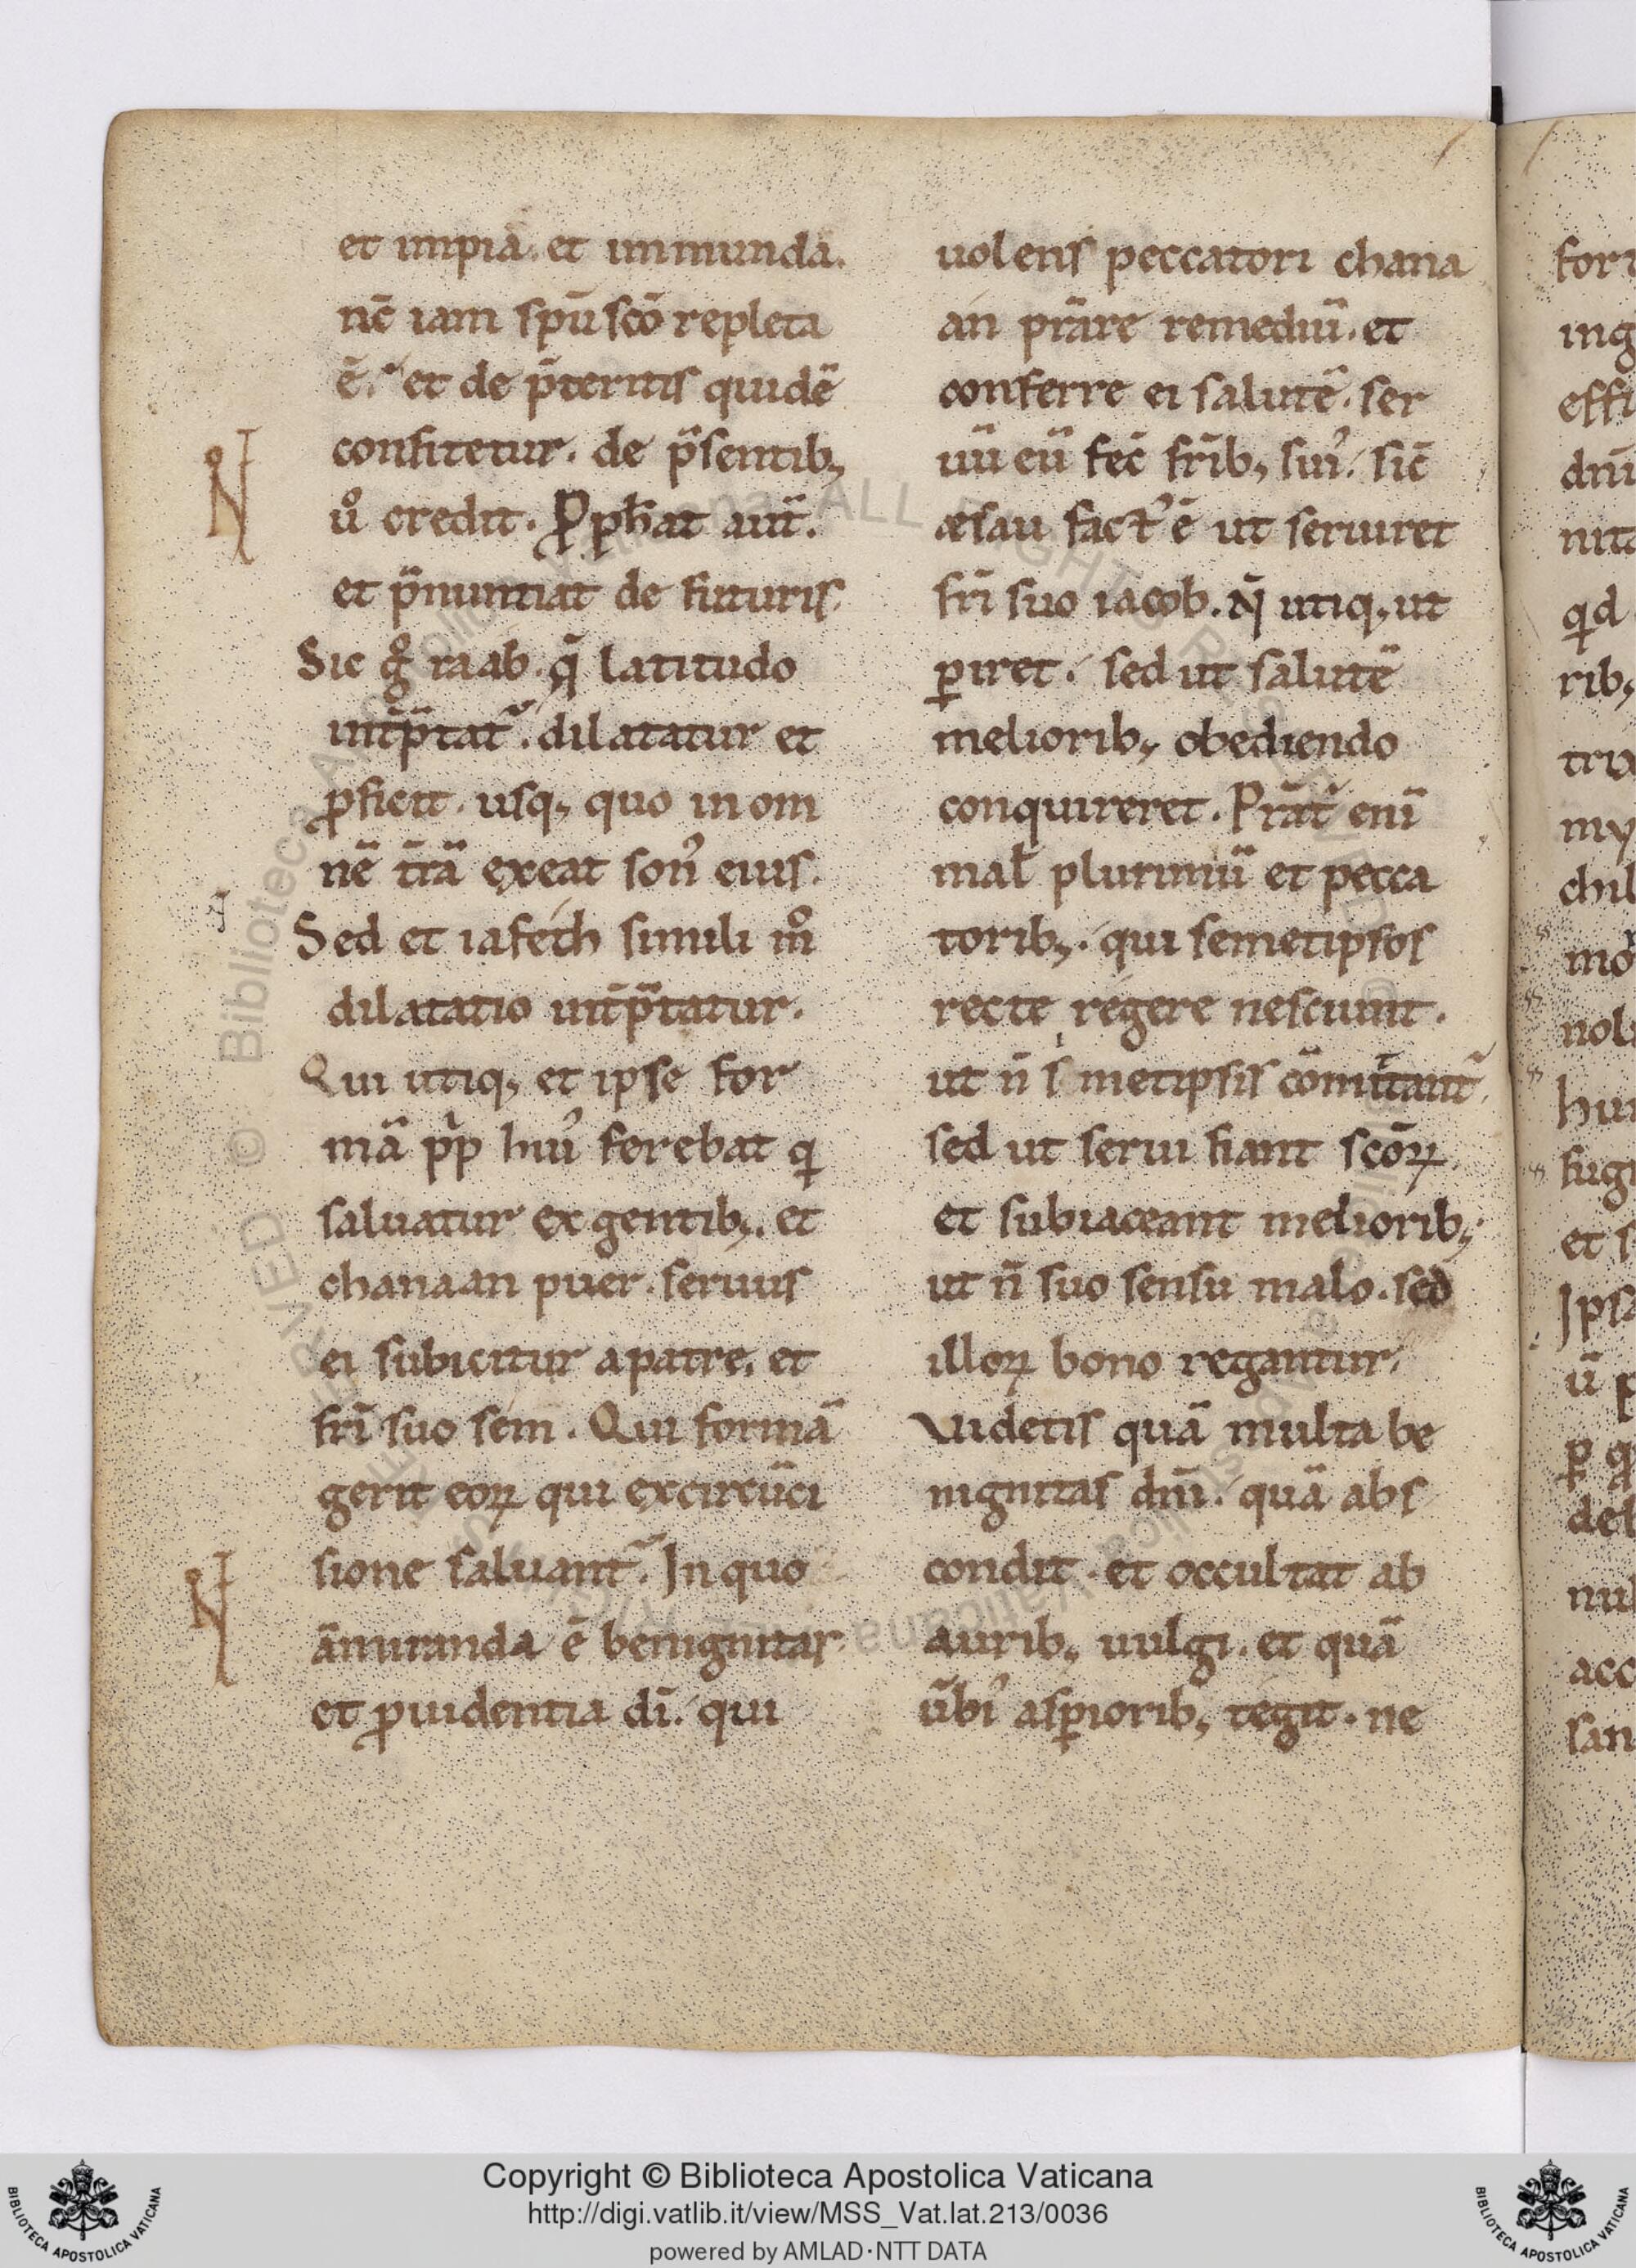 et impia. et immunda.
nc̄ iam spū scō repleta
ē. et de p̄teritis quidē
confitetur. de p̄sentib;
ů credit. Ꝓph̄at aut̄.
et p̄nuntiat de futuris.
Sic gͦ raab. q̄ latitudo
int̄p̄tat̃. dilatatur et
ꝓficit. usq; quo in om
nē t̄rā exeat son᾽ eius.
Sed et iafeth simili mͦ
dilatatio int̄p̄tatur.
Qui utiq; et ipse for
mā pp̄ hui᾽ ferebat q
saluatur ex gentib;. et
chanaan puer. seruus
ei subicitur a patre. et
fr̄i suo sem. Qui formā
gerit eoꝝ qui ex circūci
sione saluant̃. In quo
āmiranda ē benignitas
et ꝓuidentia dī. qui
uolens peccatori chana
an p̄rare remediū. et
conferre ei salutē. ser
uū eū fec̄ fr̄ib; sui᾽. sic̄
æsau fact᾽ ē ut seruiret
fr̄i suo iacob. N̄ utiq; ut
ꝑiret. sed ut salutē
meliorib; obediendo
conquireret. Prat̄ eni̅
mal̄ plurimū et pecca
torib;. qui semetipsos
recte regere nesciunt.
ut n̄ s metipsis cōmittant̃.
sed ut serui fiant scōꝝ.
et subiaceant meliorib;
ut n̄ suo sensu malo. sed
illoꝝ bono regantur.
Videtis quā multa be
nignitas dn̄i. quā abs
condit. et occultat ab
aurib; uulgi. et quā
ūbi᾽ asꝑiorib; tegit. ne
Copyright © Biblioteca Apostolica Vaticana
http://digi.vatlib.it/view/MSS_Vat.lat.213/0036
powered by AMLAD·NTT DATA
BIBLIOTECA APOSTOLICA VATICANA
BIBLIOTECA APOSTOLICA VATICANA